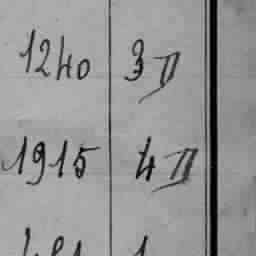 1240 3 II
1915 4 II